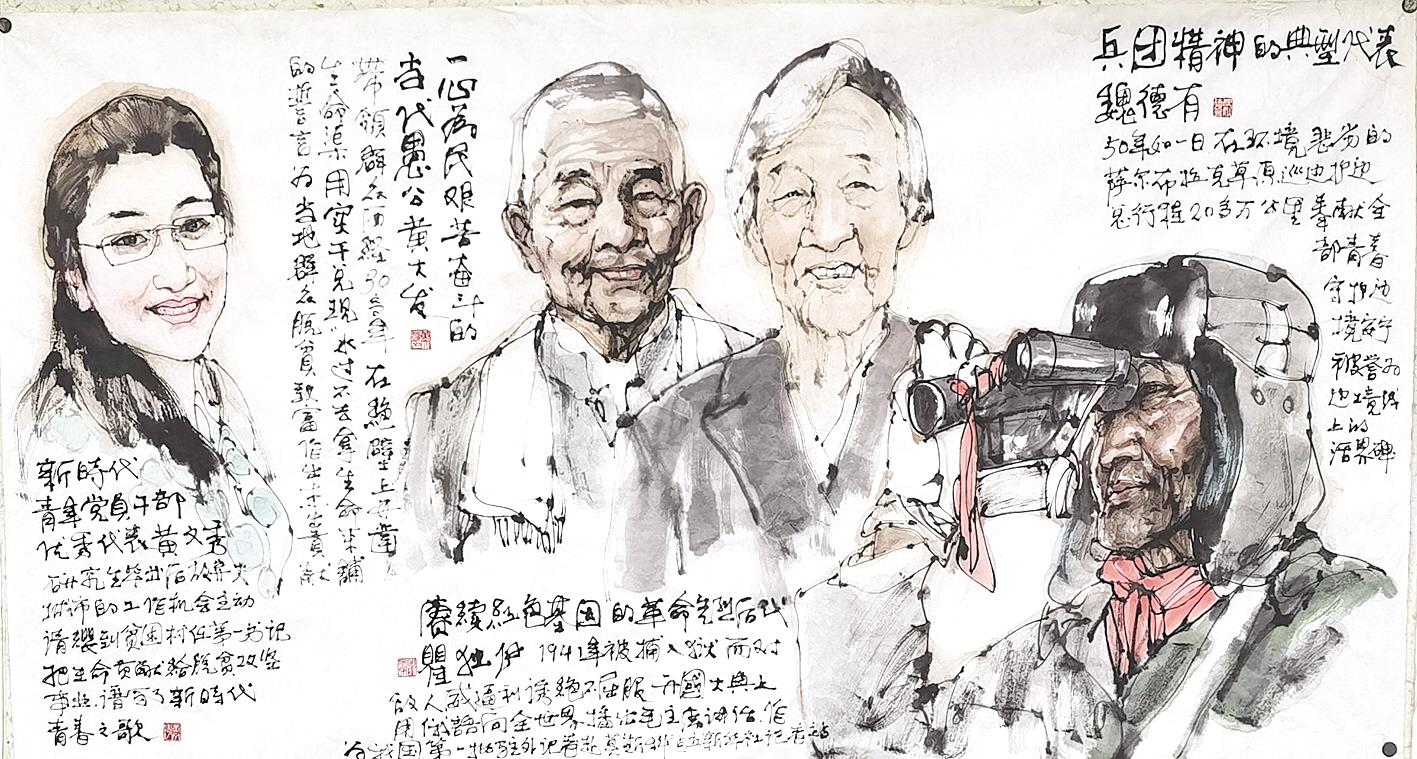 新時代
青年党員干部
优秀代表黄文秀
研究生毕业后放弃大
城市的工作机会主动
请缨到贫困村任第一书记
把生命贡献给脱贫攻坚
事业谱写了新時代
青春之歌
一心為民艰苦奋斗的
当代愚公黄大发
带領群众历经30多年在绝壁上开凿
生命渠用实干兑现水过不去拿生命来铺
的誓言为当地群众脱贫致富作出突出貢献
赓續紅色基因的革命先烈后代
瞿独伊 1941年被捕入狱面对
敌人威逼利诱绝不屈服 开國大典上
用俄語向全世界播出毛主席讲话 作
为我国第一批驻外记者赴莫斯科建立新华社记者站
兵团精神的典型代表
魏德有
50年如一日在环境恶劣的
萨尔布拉克草原巡边护边
总行程20多万公里奉献全
部青春
守护边
境安宁
被誉为
边境线
上的
活界碑